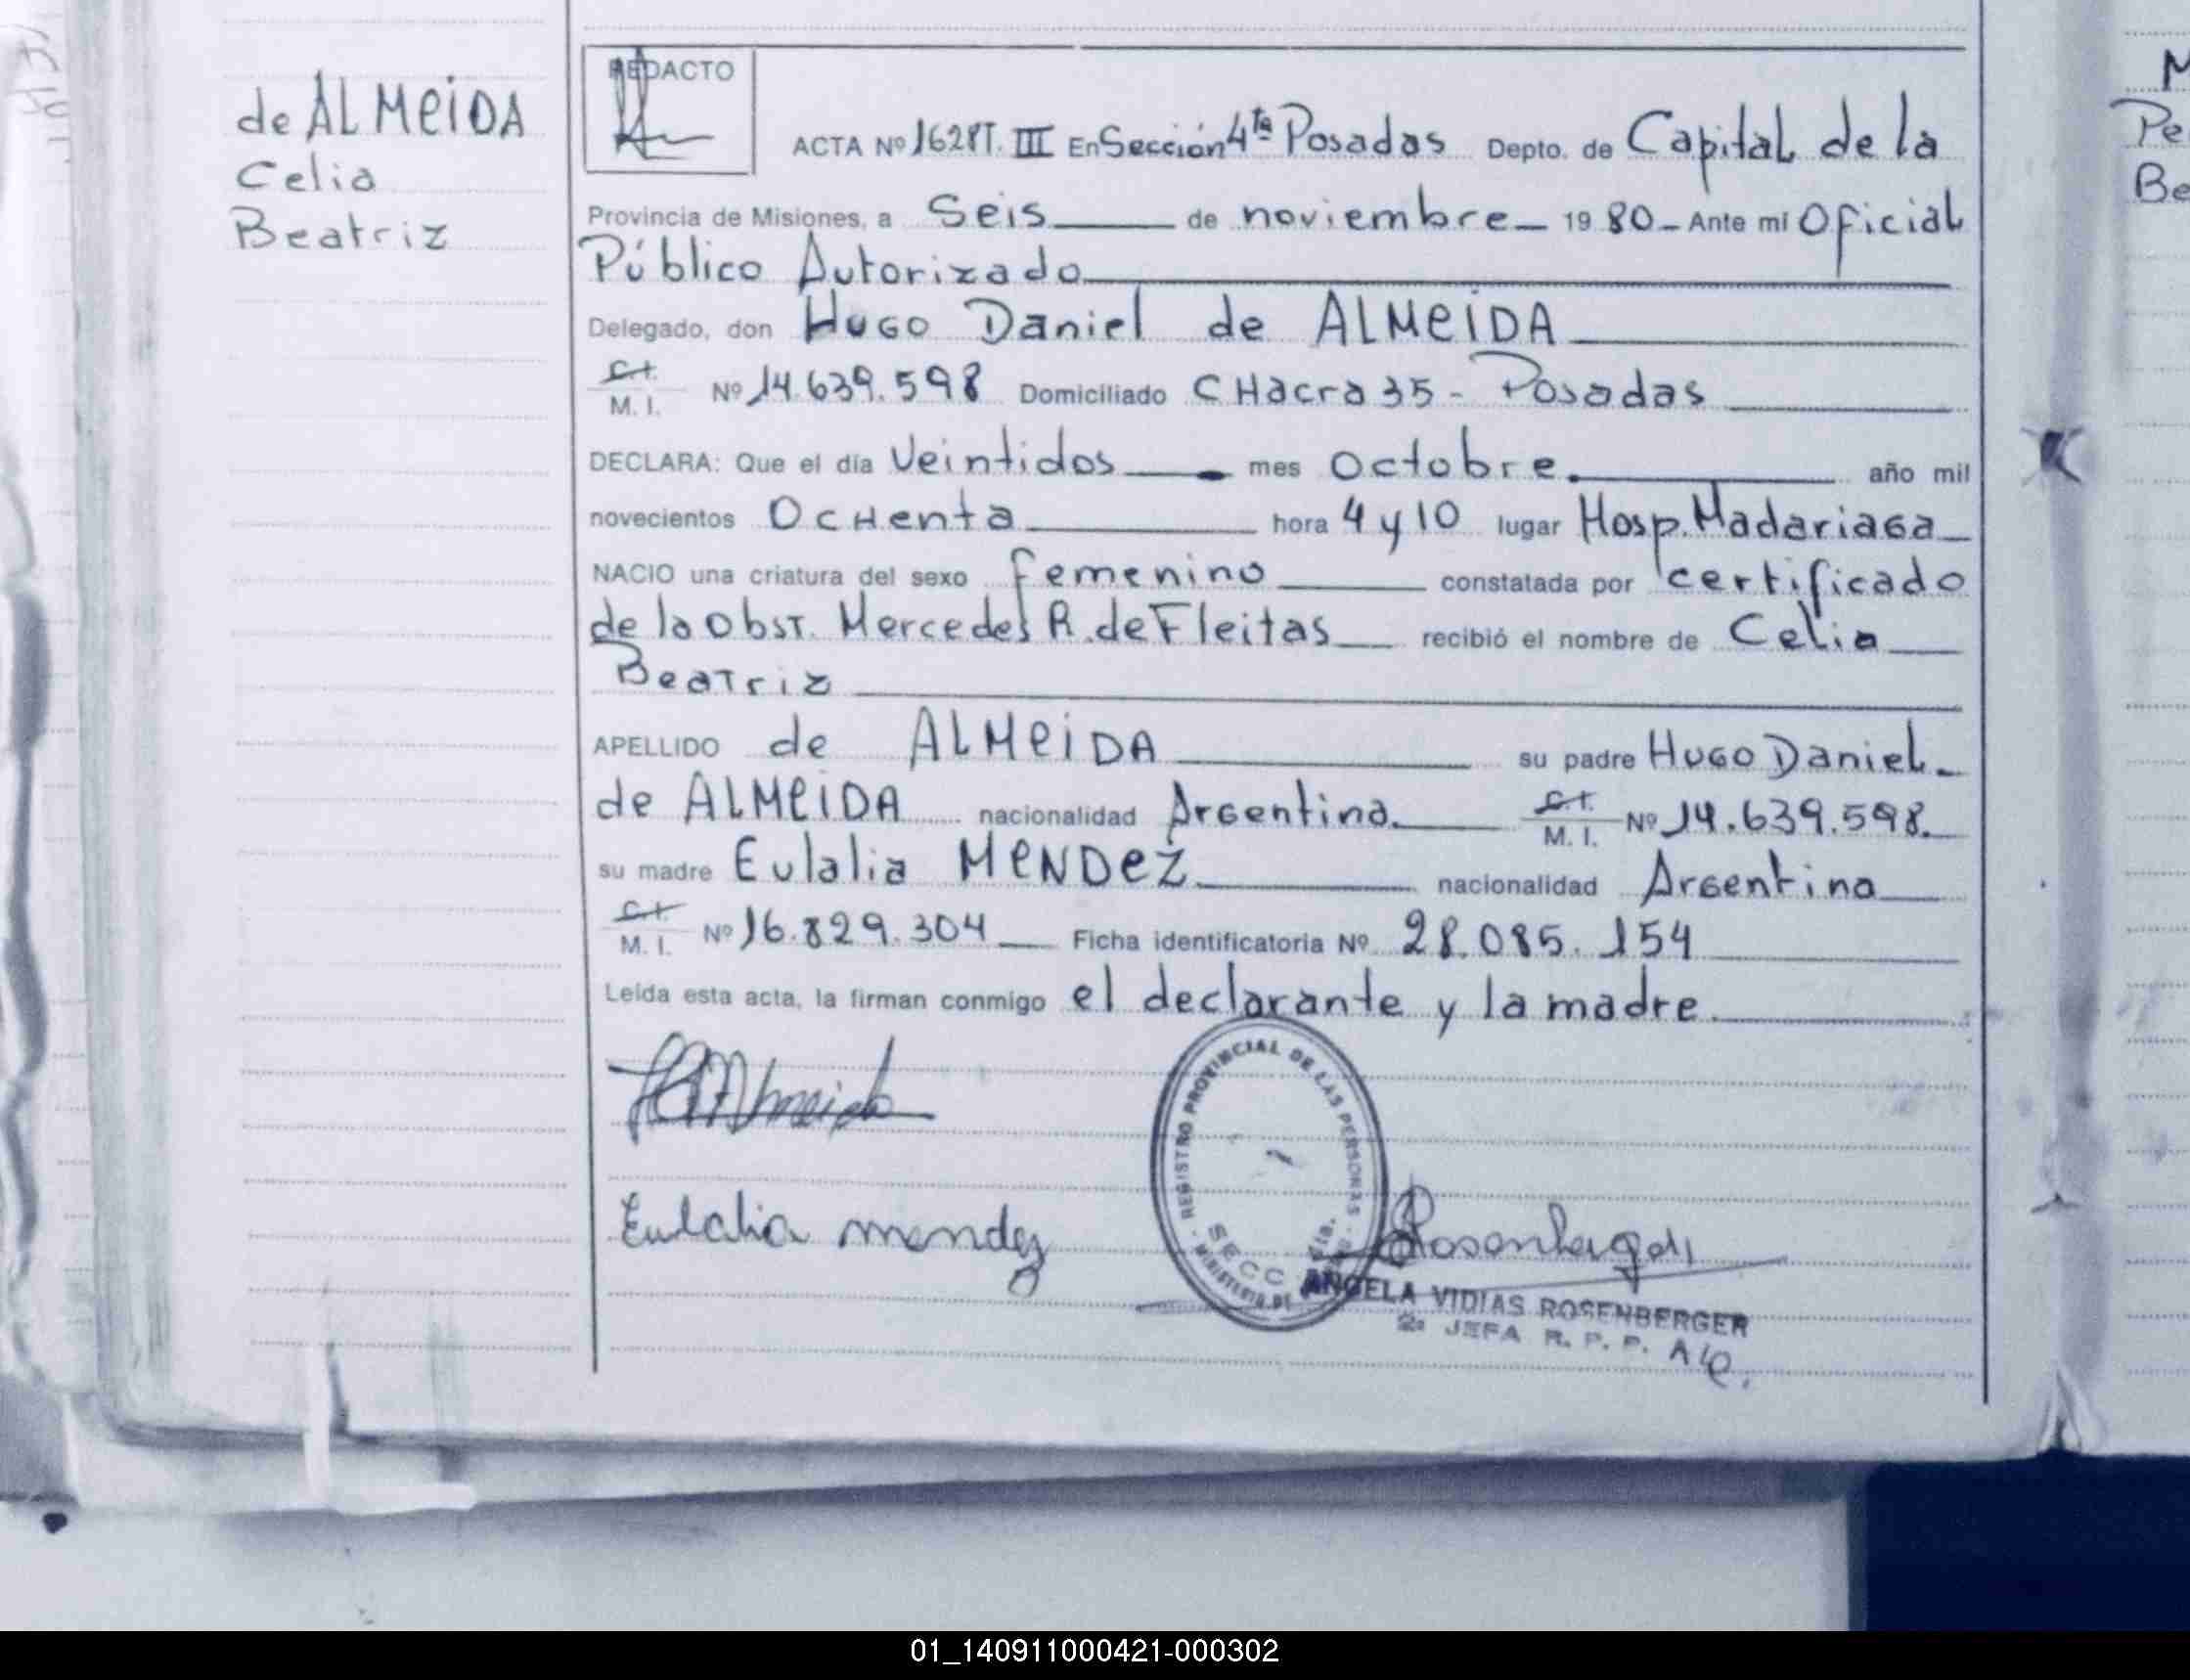 de ALMEIDA
Celia
Beatriz
REDACTO
ACTA Nº 1628 T. III En Sección 4ta Posadas Depto. de Capital de la
Provincia de Misiones, a Seis de noviembre 1980 Ante mí Oficial
Público Autorizado
Delegado, don Hugo Daniel de ALMEIDA
C.I.
M. I. Nº 14.639.598 Domiciliado CHacra 35 - Posadas
DECLARA: Que el día Veintidos mes Octubre. año mil
novecientos OcHenta hora 4 y 10 lugar Hosp. Madariaga
NACIO una criatura del sexo femenino constatada por certificado
de la Obst. Mercedes R. de Fleitas recibió el nombre de Celia
Beatriz
APELLIDO de ALMEIDA su padre Hugo Daniel
de ALMEIDA nacionalidad Argentina. C.I. M. I. Nº 14.639.598.
su madre Eulalia MENDEZ nacionalidad Argentina
C.I.
M. I. Nº 16.829.304 Ficha identificatoria Nº 28.085.154
Leída esta acta, la firman conmigo el declarante y la madre.
REGISTRO PROVINCIAL DE LAS PERSONAS
SECC. 4ta.
MINISTERIO DE
Eulalia mendez
ANGELA VIDIAS ROSENBERGER
2a JEFA R. P. P. A/c.
M
Pe
Be
01_140911000421-000302